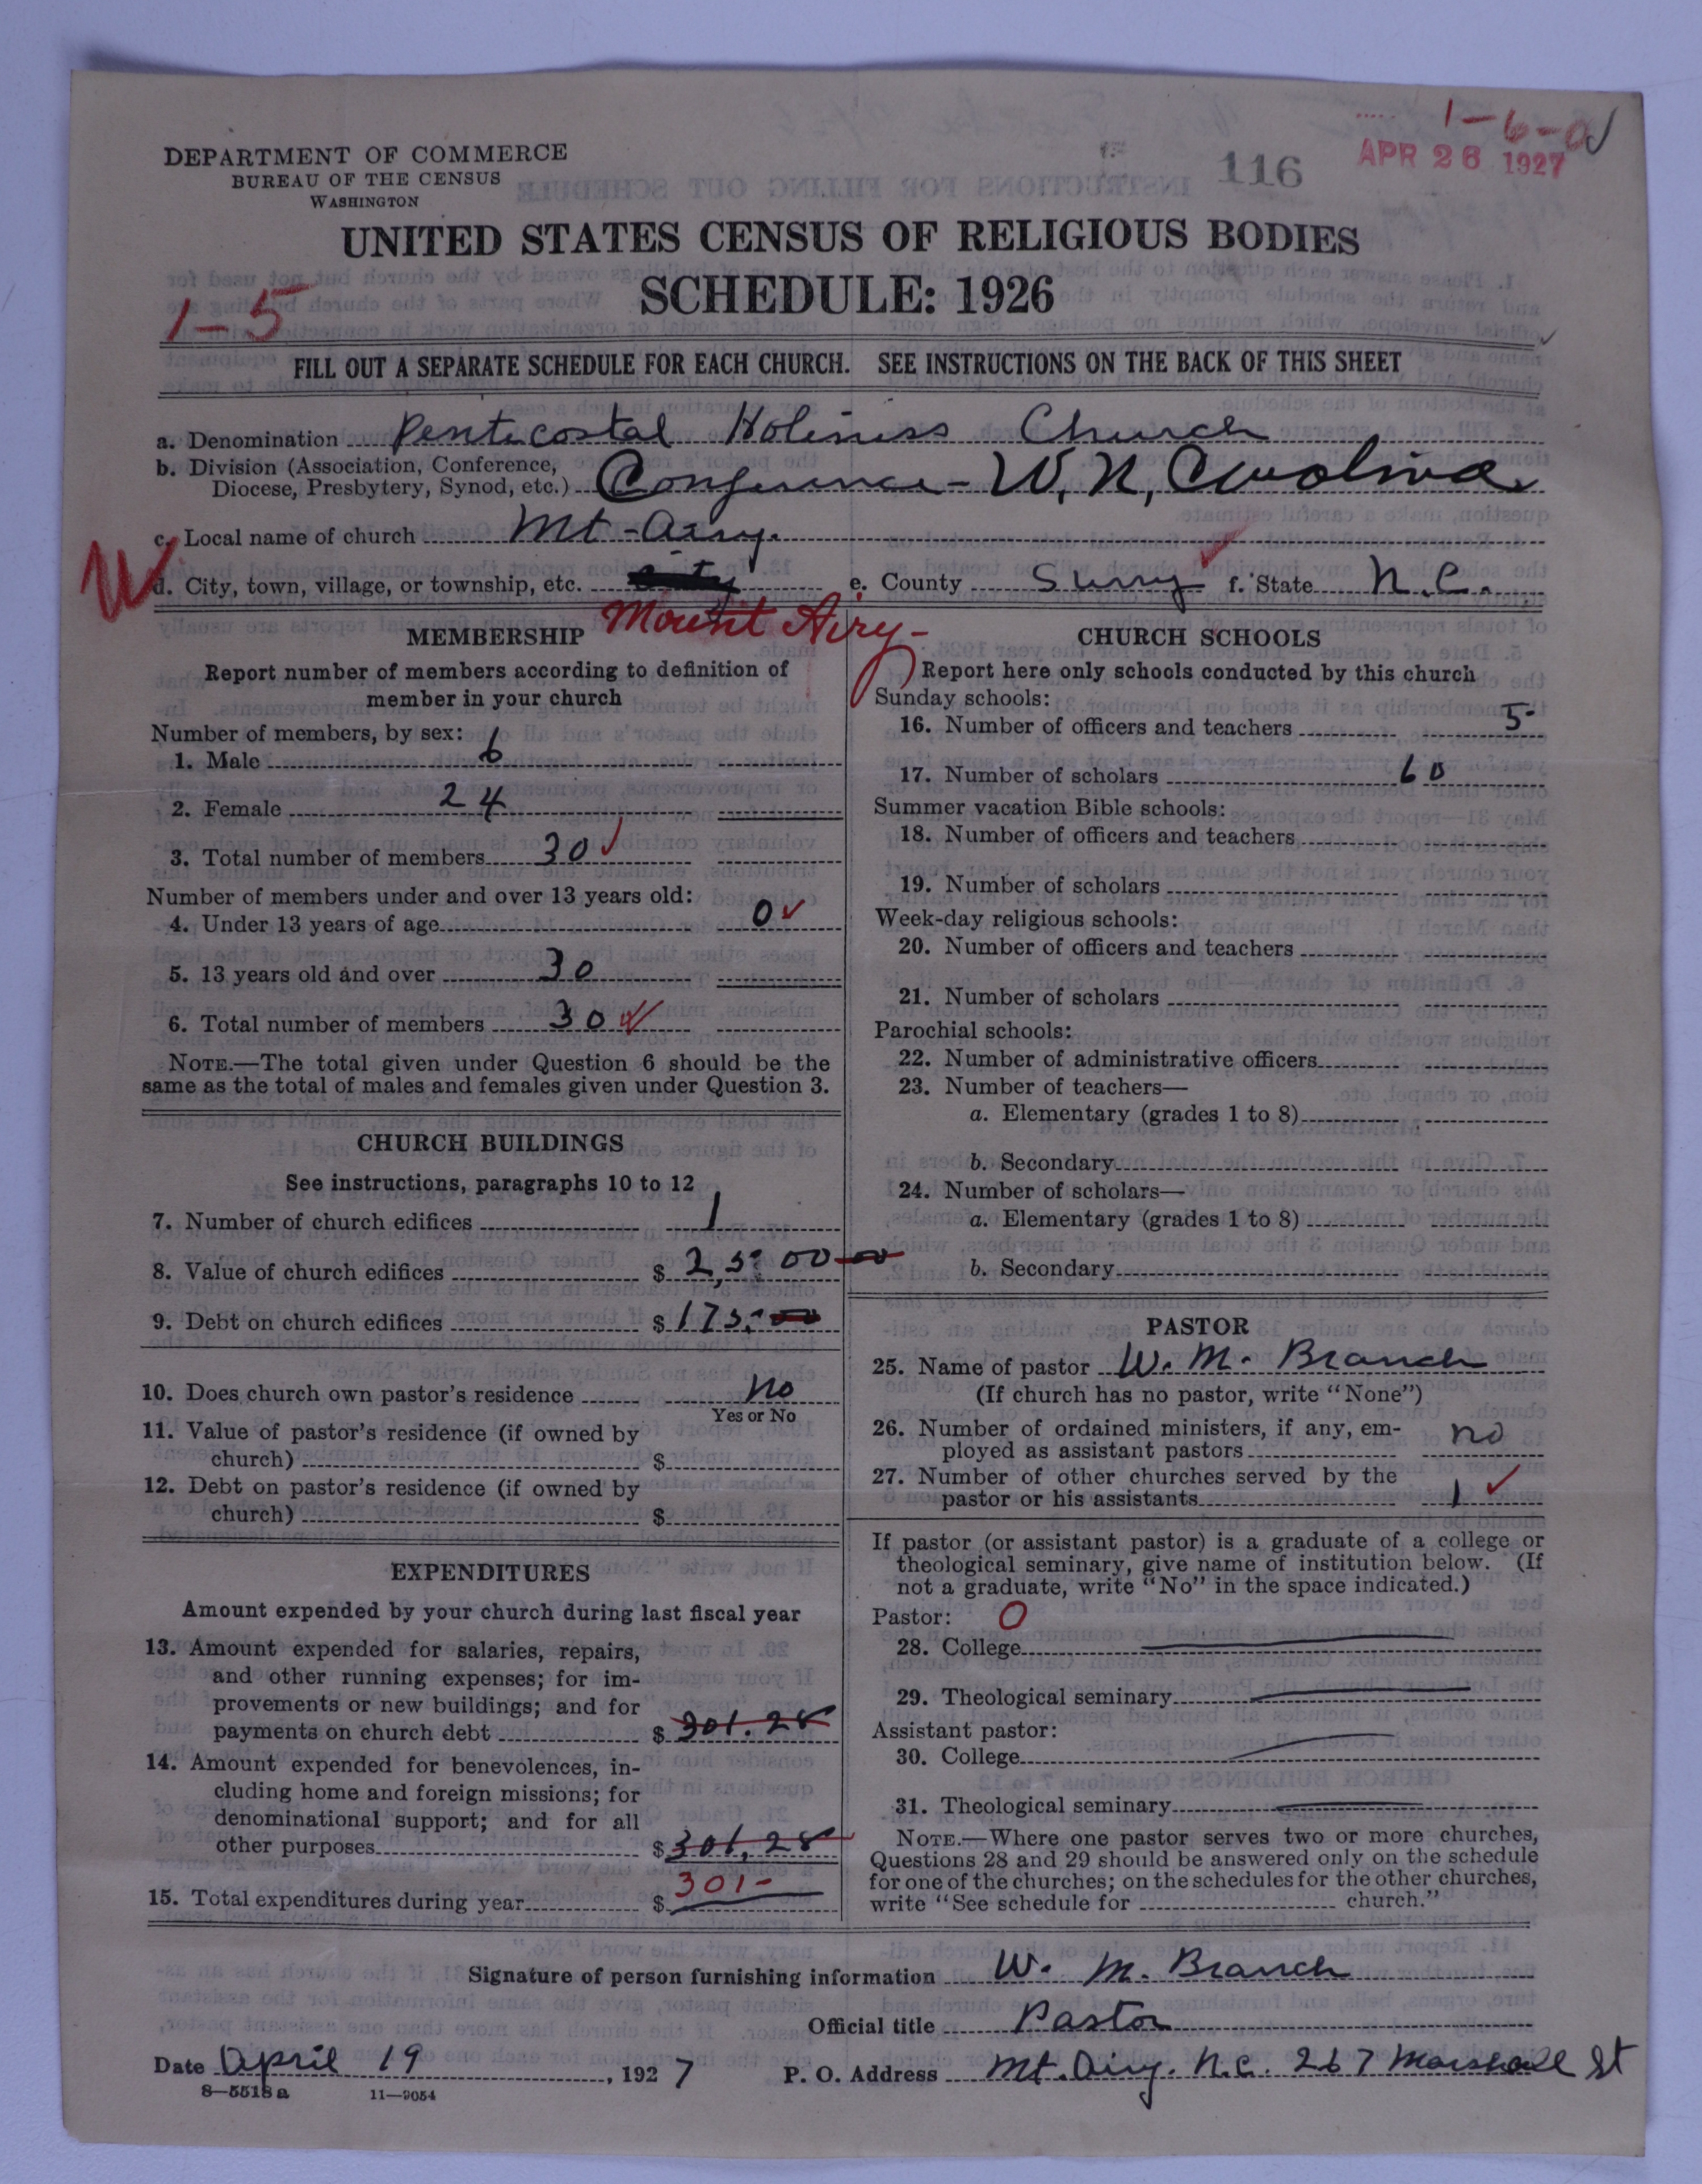 1-6-0
DEPARTMENT OF COMMERCE
BUREAU OF THE CENSUS
WASHINGTON
116
APR 26 1927
UNITED STATES CENSUS OF RELIGIOUS BODIES
SCHEDULE: 1926
1-5
FILL OUT A SEPARATE SCHEDULE FOR EACH CHURCH. SEE INSTRUCTIONS ON THE BACK OF THIS SHEET
a. Denomination Pentecostal Holiness Church
b. Division (Association, Conference,
Diocese, Presbytery, Synod, etc.) Conference - W. N. Carolina
c. Local name of church Mt-Airy.
W
d. City, town, village, or township, etc. City e. County Surry f. State N.C.
Mount Airy-
MEMBERSHIP
Report number of members according to definition of
member in your church
Number of members, by sex:
1. Male 6
2. Female 24
3. Total number of members 30
Number of members under and over 13 years old:
4. Under 13 years of age 0
5. 13 years old and over 30
6. Total number of members 30
NOTE.—The total given under Question 6 should be the
same as the total of males and females given under Question 3.
CHURCH BUILDINGS
See instructions, paragraphs 10 to 12
7. Number of church edifices 1
8. Value of church edifices $ 2,500 00
9. Debt on church edifices $ 175.00
10. Does church own pastor's residence No
Yes or No
11. Value of pastor's residence (if owned by
church) $
12. Debt on pastor's residence (if owned by
church) $
EXPENDITURES
Amount expended by your church during last fiscal year
13. Amount expended for salaries, repairs,
and other running expenses; for im-
provements or new buildings; and for
payments on church debt $ 301.28
14. Amount expended for benevolences, in-
cluding home and foreign missions; for
denominational support; and for all
other purposes $ 301.28
15. Total expenditures during year $ 301-
CHURCH SCHOOLS
Report here only schools conducted by this church
Sunday schools:
16. Number of officers and teachers 5
17. Number of scholars 60
Summer vacation Bible schools:
18. Number of officers and teachers
19. Number of scholars
Week-day religious schools:
20. Number of officers and teachers
21. Number of scholars
Parochial schools:
22. Number of administrative officers
23. Number of teachers—
a. Elementary (grades 1 to 8)
b. Secondary
24. Number of scholars—
a. Elementary (grades 1 to 8)
b. Secondary
PASTOR
25. Name of pastor W. M. Branch
(If church has no pastor, write "None")
26. Number of ordained ministers, if any, em-
ployed as assistant pastors no
27. Number of other churches served by the
pastor or his assistants 1
If pastor (or assistant pastor) is a graduate of a college or
theological seminary, give name of institution below. (If
not a graduate, write "No" in the space indicated.)
Pastor: O
28. College
29. Theological seminary
Assistant pastor:
30. College
31. Theological seminary
NOTE.—Where one pastor serves two or more churches,
Questions 28 and 29 should be answered only on the schedule
for one of the churches; on the schedules for the other churches,
write "See schedule for church."
Signature of person furnishing information W. M. Branch
Official title Pastor
Date April 19, 1927 P. O. Address Mt. Airy. N.C. 267 Marshall St
8—5518a 11—9054